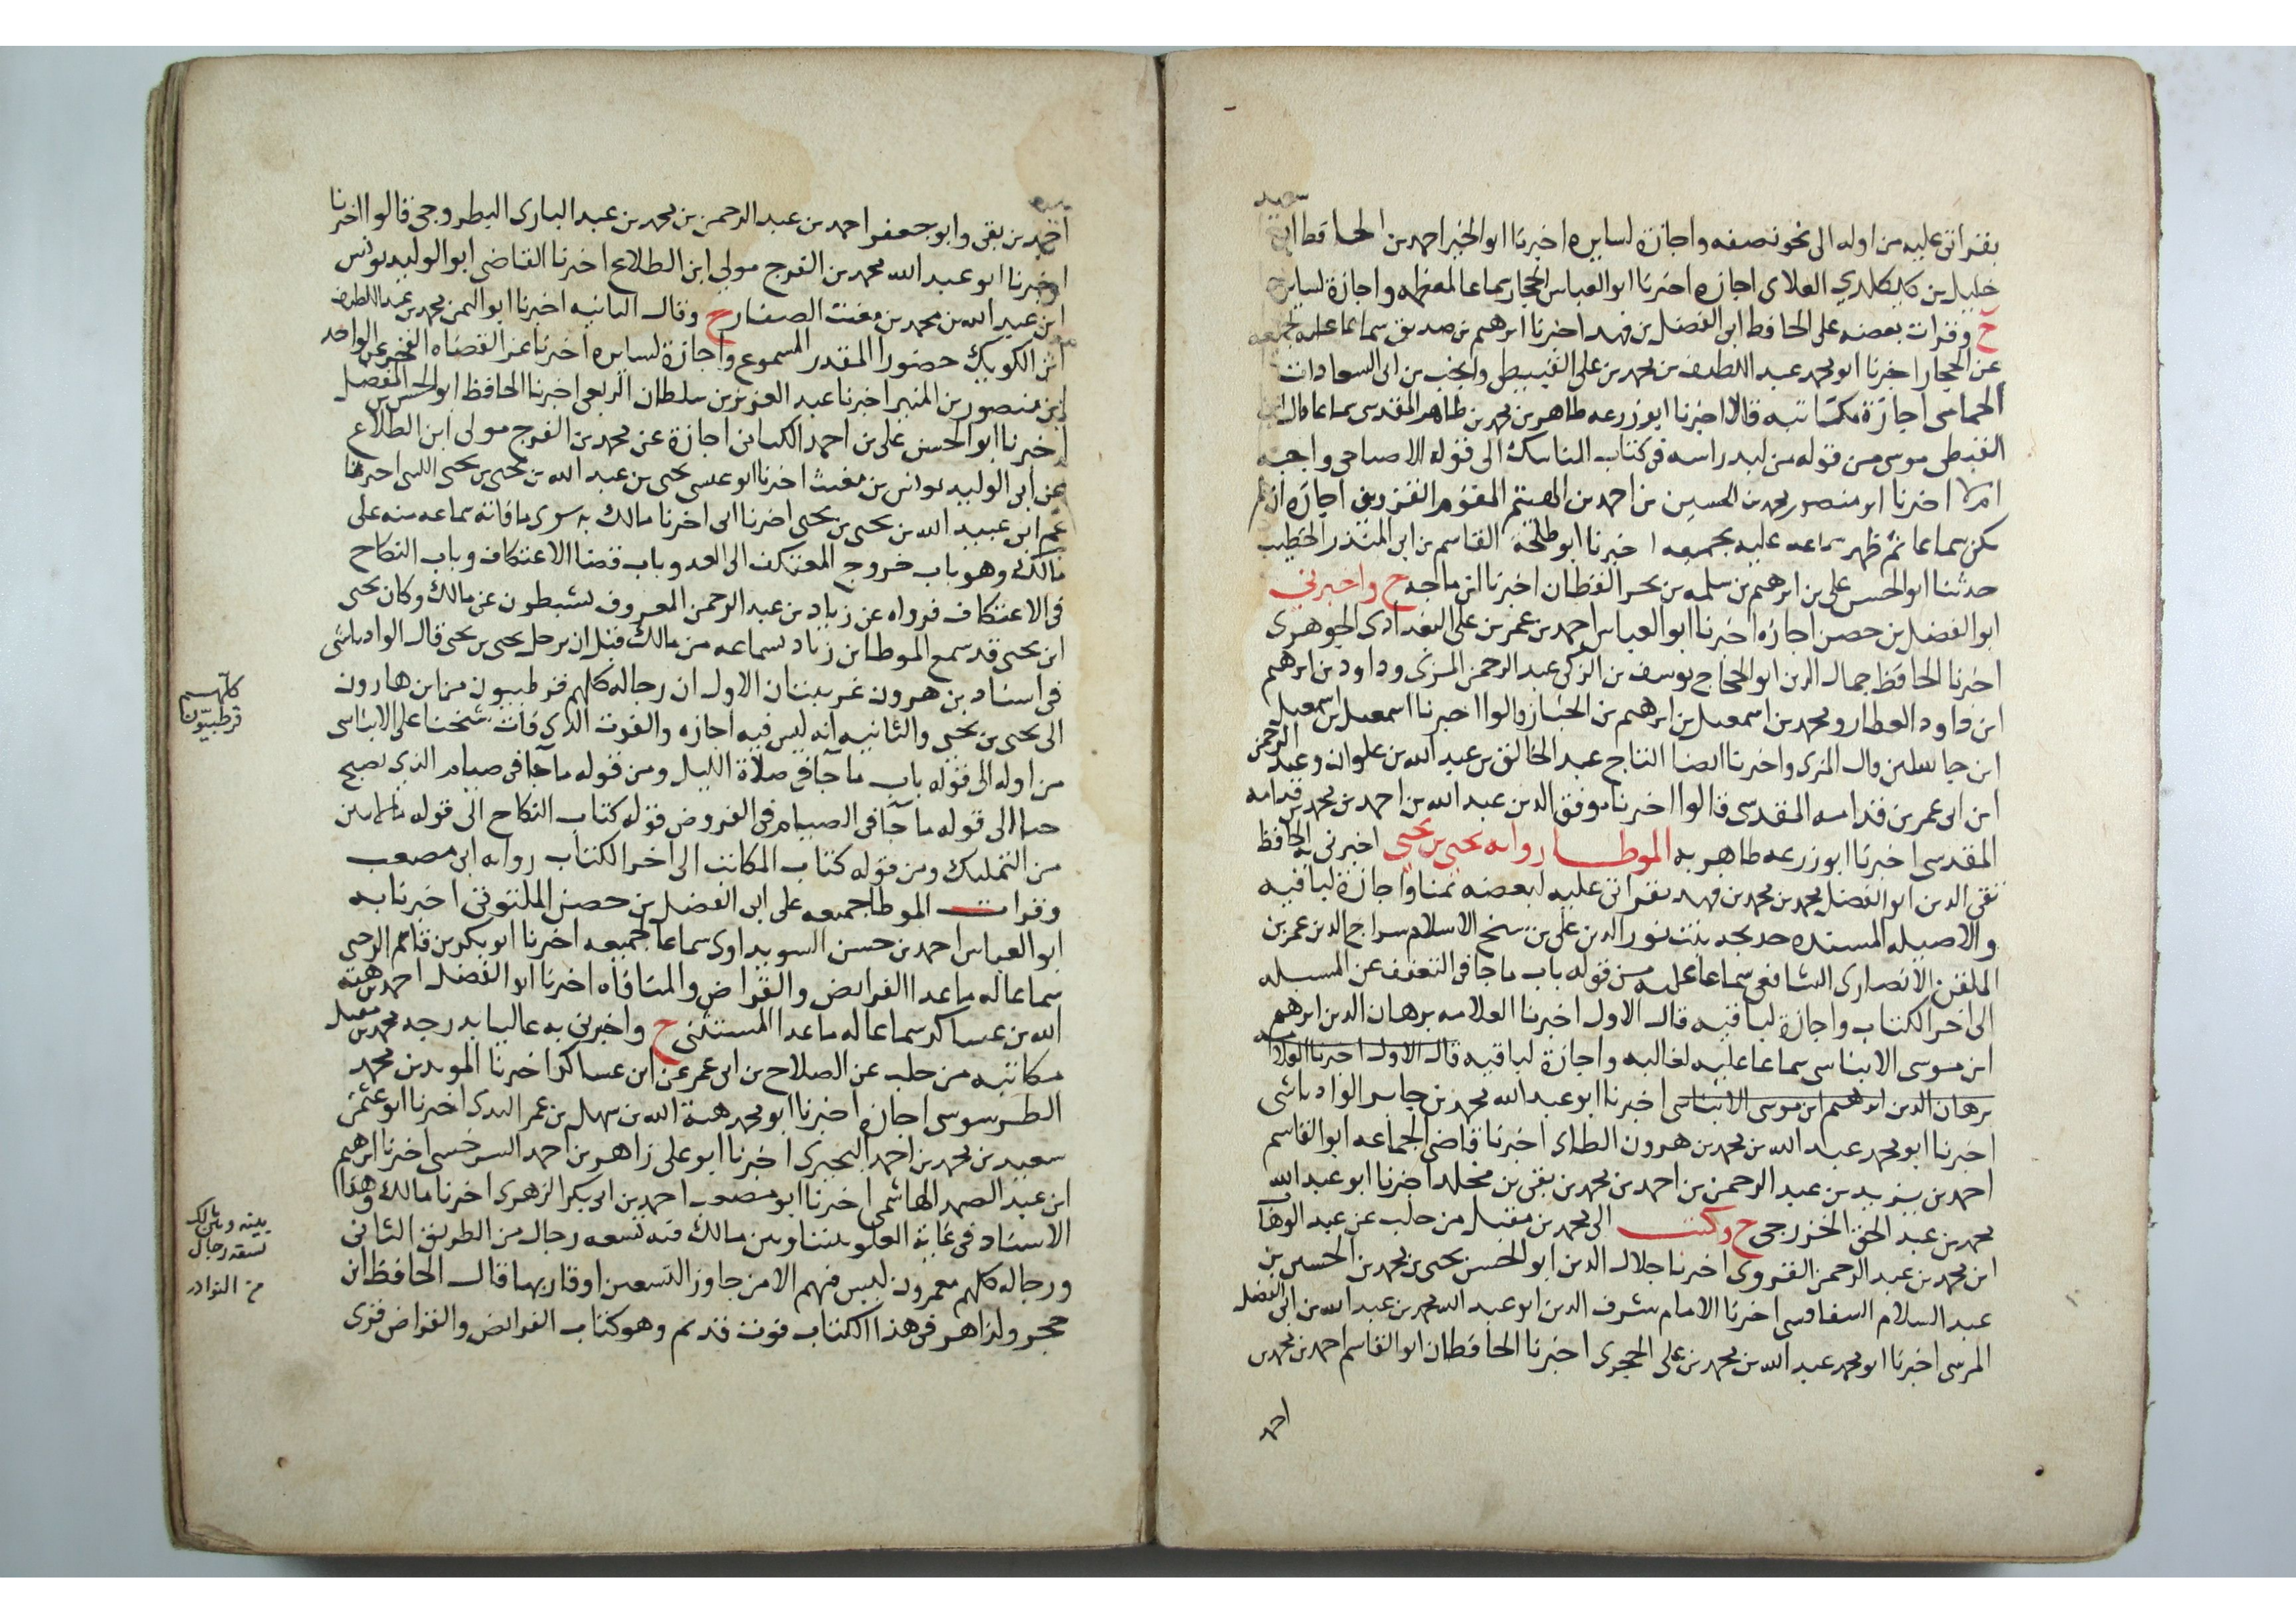 بقراتى عليه من اوله الى نحو نصفه واجازة لسايره اخبرنا ابو الخير احمد بن الحافظ ابى سعيد
خليل بن كيكلدي العلاى اجازه اخبرنا ابو العباس الحجار سماعا لمعظمه واجازة لسايره
ح وقرات بعضه على الحافظ ابى الفضل بن فهد اخبرنا ابرهيم بن صديق سماعا عليه لجميعه
عن الحجار اخبرنا ابو محمد عبد اللطيف بن محمد بن على القبيطى وانجب بن ابى السعادات
الحمامى اجازة مكاتبه قالا اخبرنا ابو زرعه طاهر بن محمد بن طاهر المقدسى سماعا قال
القبيطى سوى من قوله من لبد راسه فى كتاب المناسك الى قوله الاضاحى واجبه
ام لا اخبرنا ابو منصور محمد بن الحسين بن احمد بن الهيثم المقومى القزوينى اجازه ان لم
يكن سماعا ثم ظهر سماعه عليه بجميعه اخبرنا ابو طلحة القاسم بن ابى المنذر الخطيب
حدثنا ابو الحسن على بن ابرهيم بن سلمه بن بحر القطان اخبرنا ابن ماجه ح واخبرني
ابو الفضل بن حصن اجازه اخبرنا ابو العباس احمد بن عمر بن على البغدادى الجوهرى
اخبرنا الحافظ جمال الدين ابو الحجاج يوسف بن الزكى عبد الرحمن المزى وداود بن ابرهيم
ابن داود العطار ومحمد بن اسمعيل بن ابرهيم بن الخباز قالوا اخبرنا اسمعيل بن اسمعيل
ابن جاسلين قال المزى واخبرنا ايضا التاج عبد الخالق بن عبد الله بن علوان وعبد الرحمن
ابن ابى عمر بن قدامه المقدسى قالوا اخبرنا موفق الدين عبد الله بن احمد بن محمد بن قدامه
المقدسى اخبرنا ابو زرعه طاهر به الموطا روايه يحيى بن يحيى اخبرنى به الحافظ
تقى الدين ابو الفضل محمد بن محمد بن فهد بقراتى عليه لبعضه بمنا واجازة لباقيه
والاصيله المسنده خديجه بنت نور الدين على بن شيخ الاسلام سراج الدين عمر بن
الملقن الانصارى الشافعى سماعا عليه من قوله باب ما جا فى التعفف عن المسله
الى اخر الكتاب واجازة لباقيه قال الاول اخبرنا العلامه برهان الدين ابرهيم
ابن موسى الابناسى سماعا عليه لغالبه واجازة لباقيه قال الاول اخبرنا العلامه
برهان الدين ابرهيم ابن موسى الابناسى اخبرنا ابو عبد الله محمد بن جابر الوادياشى
اخبرنا ابو محمد عبد الله بن محمد بن هرون الطاى اخبرنا قاضى الجماعه ابو القاسم
احمد بن يزيد بن عبد الرحمن بن احمد بن محمد بن بقى بن مخلد اخبرنا ابو عبد الله
محمد بن عبد الحق الخزرجى ح وكتب الى محمد بن مقبل من حلب عن عبد الوهاب
ابن محمد بن عبد الرحمن القروى اخبرنا جلال الدين ابو الحسن يحيى بن محمد بن الحسين بن
عبد السلام السفاقسى اخبرنا الامام شرف الدين ابو عبد الله محمد بن عبد الله بن ابى الفضل
المرسى اخبرنا ابو محمد عبد الله بن محمد بن على الحجرى اخبرنا الحافظان ابو القاسم احمد بن محمد بن
احمد
احمد بن بقى وابو جعفر احمد بن عبد الرحمن بن محمد بن عبد البارى البطروجى قالوا اخبرنا
اخبرنا ابو عبد الله محمد بن الفرج مولى ابن الطلاع اخبرنا القاضى ابو الوليد يونس
ابن عبد الله بن محمد بن مغيث الصفار ح وقال الثانيه اخبرنا ابو اليمن محمد بن عبد اللطيف
ابن الكويك حضورا المقدر المسموع واجازة لسايره اخبرنا عز القضاه الفخر عبد الواحد
ابن منصور بن المنير اخبرنا عبد العزيز بن سلطان الربعى اخبرنا الحافظ ابو الحسن بن المفضل
اخبرنا ابو الحسن على بن احمد الكنانى اجازة عن محمد بن الفرج مولى ابن الطلاع
عن ابى الوليد يونس بن مغيث اخبرنا ابو عيسى يحيى بن عبد الله بن يحيى بن يحيى الليثى اخبرنا
عم ابى عبيد الله بن يحيى بن يحيى اخبرنا ابى اخبرنا مالك به سوى ما فاته سماعه منه على
مالك وهو باب خروج المعتكف الى العيد وباب قضا الاعتكاف وباب النكاح
فى الاعتكاف فرواه عن زياد بن عبد الرحمن المعروف بشبطون عن مالك وكان يحيى
ابن يحيى قد سمع الموطا من زياد بسماعه من مالك قبل ان يرحل يحيى بن يحيى قال الوادياشى
فى اسناد بن هرون غريبتان الاولى ان رجاله كلهم قرطبيون من ابن هارون
الى يحيى بن يحيى والثانيه انه ليس فيه اجازه والفوت الذى فات شيخنا على الابناسى
من اوله الى قوله باب ما جا فى صلاة الليل ومن قوله ما جا فى صيام الذى يصبح
جنبا الى قوله ما جا فى الصيام فى القروض قوله كتاب النكاح الى قوله ما لا يبين
من التمليك ومن قوله كتاب المكاتب الى اخر الكتاب روايه ابى مصعب
وقرات الموطا جميعه على ابى الفضل بن حصن الملتوتى اخبرنا به
ابو العباس احمد بن حسن السويداوى سماعا لجميعه اخبرنا ابو بكر بن قاسم الرحبى
سماعا له ما عدا الفرايض والقراض والمساقاه اخبرنا ابو الفضل احمد بن هبة
الله بن عساكر سماعا له ما عدا المستثنى ح واخبرنى به عاليا بدرجه محمد بن مقبل
مكاتبه من حلب عن الصلاح بن ابى عمر عن ابن عساكر اخبرنا المويد بن محمد
الطوسى اجازه اخبرنا ابو محمد هبة الله بن سهل بن عمر السيدى اخبرنا ابو عثمن
سعيد بن محمد بن احمد البحيرى اخبرنا ابو على زاهر بن احمد السرخسى اخبرنا ابرهيم
ابن عبد الصمد الهاشمى اخبرنا ابو مصعب احمد بن ابى بكر الزهرى اخبرنا مالك وهذا
الاسناد فى غاية العلو بيننا وبين مالك فيه تسعه رجال من الطريق الثانى
ورجاله كلهم معمرون ليس فيهم الا من جاوز التسعين او قاربها قال الحافظ ابن
حجر ولزاهر فى هذا الكتاب فوت قديم وهو كتاب الفرايض والقراض قرى
كلهم
قرطبيون
بينه وبين مالك
تسعه رجال
من النوادر